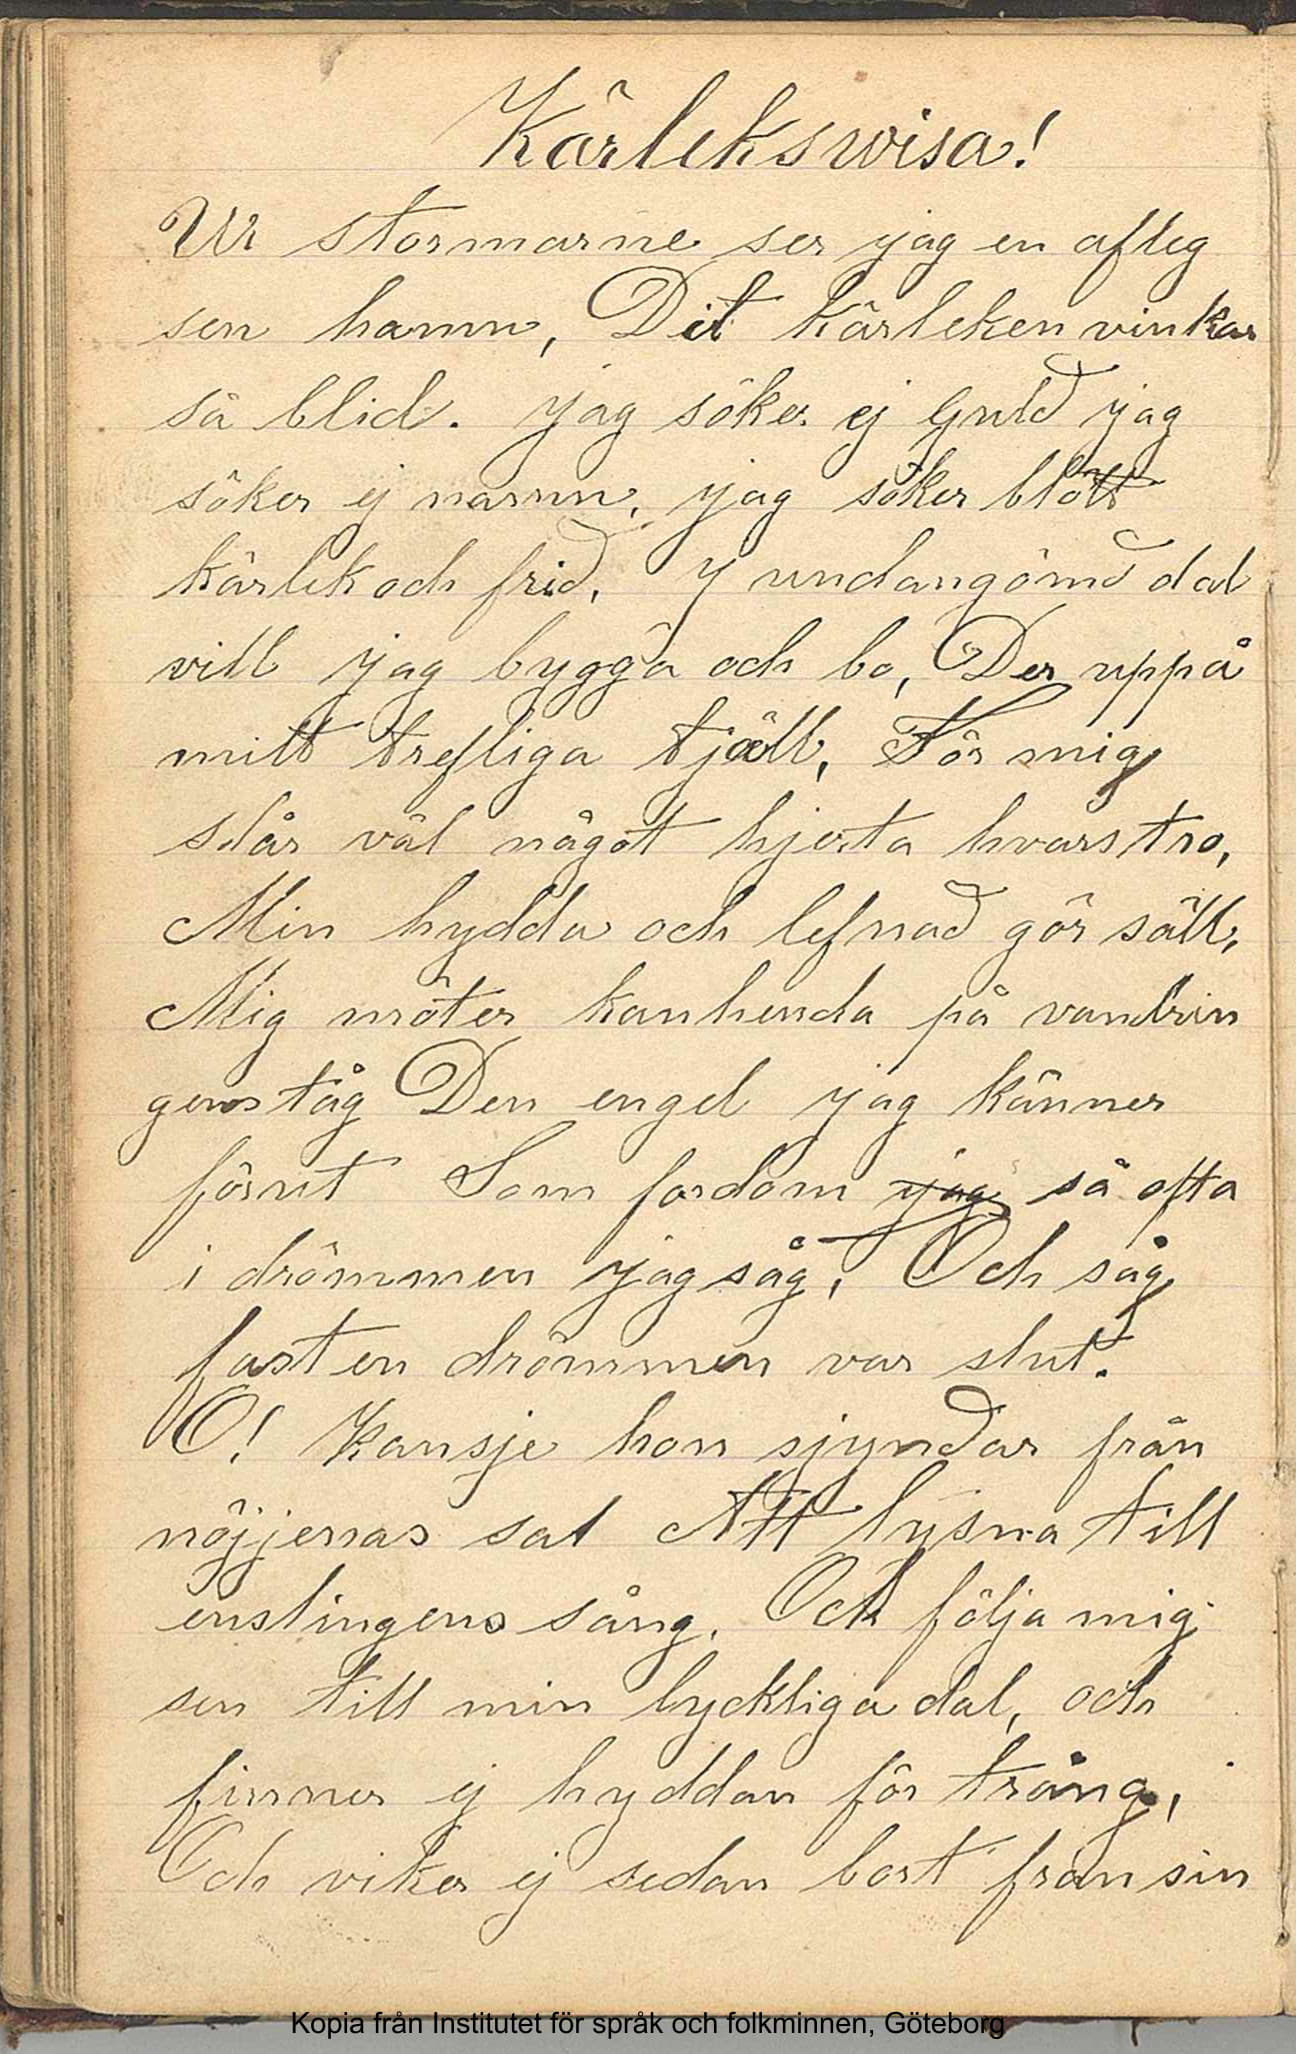 Kärlekswisa!
Ur stormarne ser jag en afleg
sen hamn, Dit kärleken vinkar
så blid. jag söker ej Guld jag
söker ej namn, jag söker blott
kärlek och frid, I undangömd dal
vill jag bygga och bo, Der uppå
mitt trefliga tjäll, För mig
slår väl något hjerta hvars tro,
Min hydda och lefnad gör säll,
Mig möter kanhenda på vandrin
gens tåg Den engel jag känner
förut Som fordom jag så ofta
i drömmen jag såg, Och såg
fast en drömmen var slut.
O! Kansje hon sjyndar från
nöjjenas sal Att lysna till
enslingens sång. Och följa mig
sen till min lyckliga dal, och
finner ej hyddan för trång,
Och viker ej sedan bort från sin
Kopia från Institutet för språk och folkminnen, Göteborg